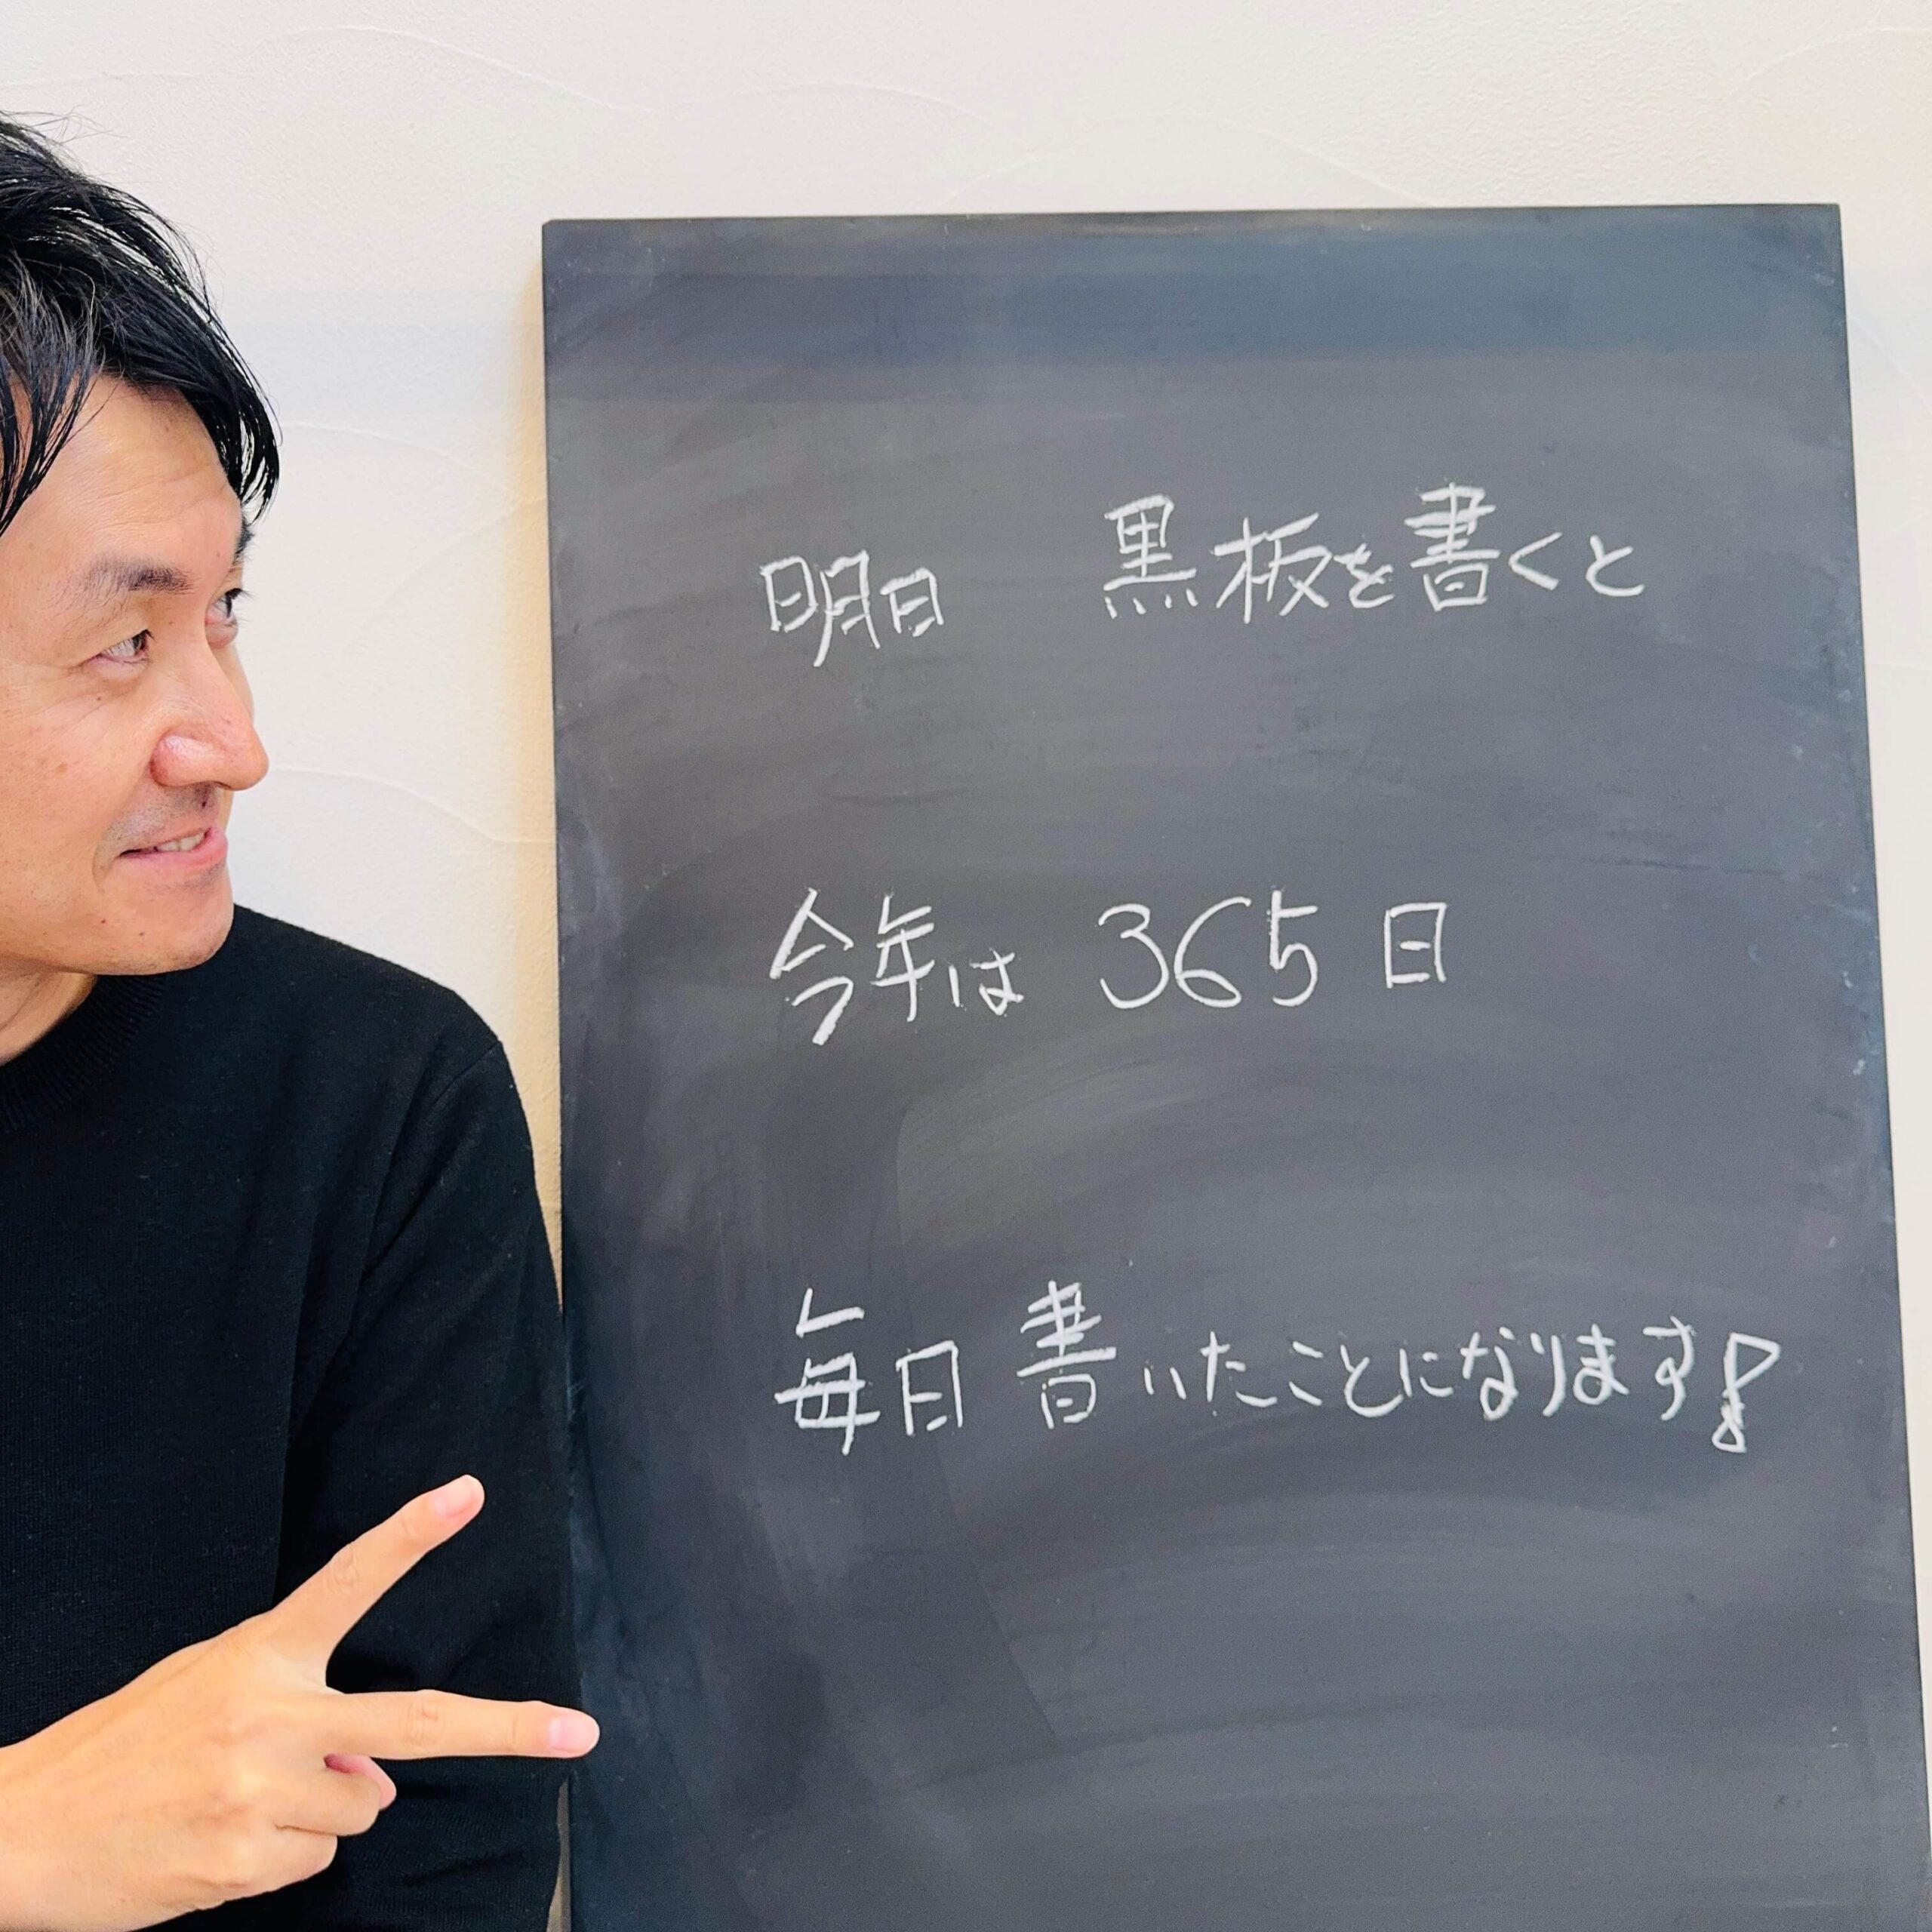 明日 黒板を書くと
今年は 365日
毎日書いたことになります!